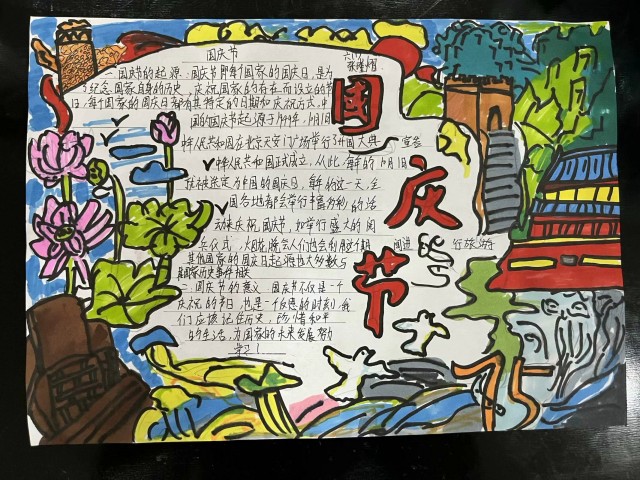 国庆节
一 国庆节的起源：国庆节即每个国家的国庆日，是为
了纪念国家自身的历史，庆祝国家的存在而设立的节
日，每个国家的国庆日都有其特定的日期和庆祝方式，中
国的国庆节起源于1949年，10月1日
中华人民共和国在北京天安门广场举行了开国大典 宣告
中华人民共和国正式成立，从此，每年的10月1日
就被定为中国的国庆日，每年的这一天，全
国各地都会举行丰富多彩的活
动来庆祝国庆节，如举行盛大的阅
兵仪式，大晚会人们也会利假期 行旅游
其他国家的国庆日起源也大多数与
国家历史事件相关
二 国庆节的意义 国庆节不仅是一个
庆祝的节日，也是一个反思的时刻，我
们应该记住历史，珍惜和平
的生活，为国家的未来发展努力
学习！
国庆节
75